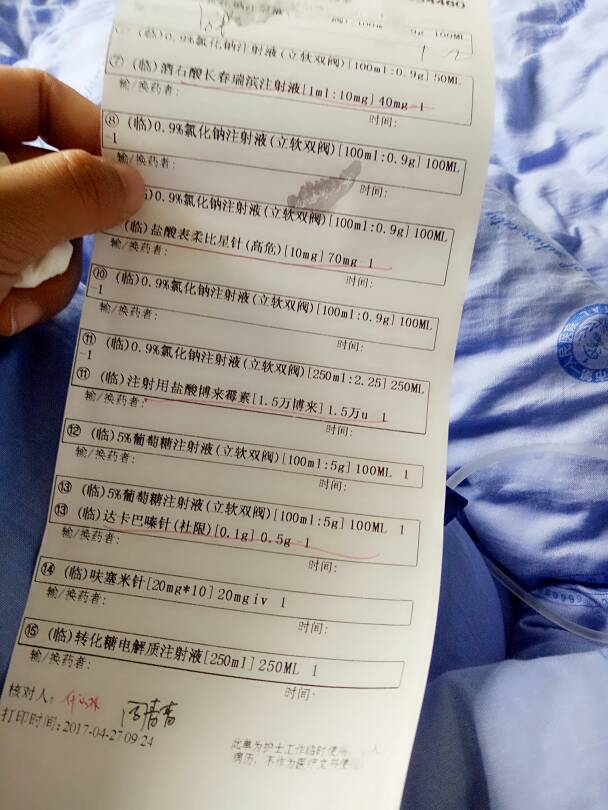 94460
100ML
⑦ (临)0.9%氯化钠注射液(立软双阀)[100ml:0.9g] 50ML
⑦ (临)酒石酸长春瑞滨注射液[1ml:10mg] 40mg 1
输/换药者: 时间:
⑧ (临)0.9%氯化钠注射液(立软双阀)[100ml:0.9g] 100ML
1
输/换药者: 时间:
(临)0.9%氯化钠注射液(立软双阀)[100ml:0.9g] 100ML
(临)盐酸表柔比星针(高危)[10mg] 70mg 1
输/换药者: 时间:
⑩ (临)0.9%氯化钠注射液(立软双阀)[100ml:0.9g] 100ML
1
输/换药者: 时间:
⑪ (临)0.9%氯化钠注射液(立软双阀)[250ml:2.25] 250ML
1
⑪ (临)注射用盐酸博来霉素[1.5万博来] 1.5万u 1
输/换药者: 时间:
⑫ (临)5%葡萄糖注射液(立软双阀)[100ml:5g] 100ML 1
输/换药者: 时间:
⑬ (临)5%葡萄糖注射液(立软双阀)[100ml:5g] 100ML 1
⑬ (临)达卡巴嗪针(杜限)[0.1g] 0.5g 1
输/换药者: 时间:
⑭ (临)呋塞米针[20mg*10] 20mg iv 1
输/换药者: 时间:
⑮ (临)转化糖电解质注射液[250ml] 250ML 1
输/换药者: 时间:
核对人:
打印时间:2017-04-27 09:24
此单为护士工作临时使
病历,不作为医疗文书使